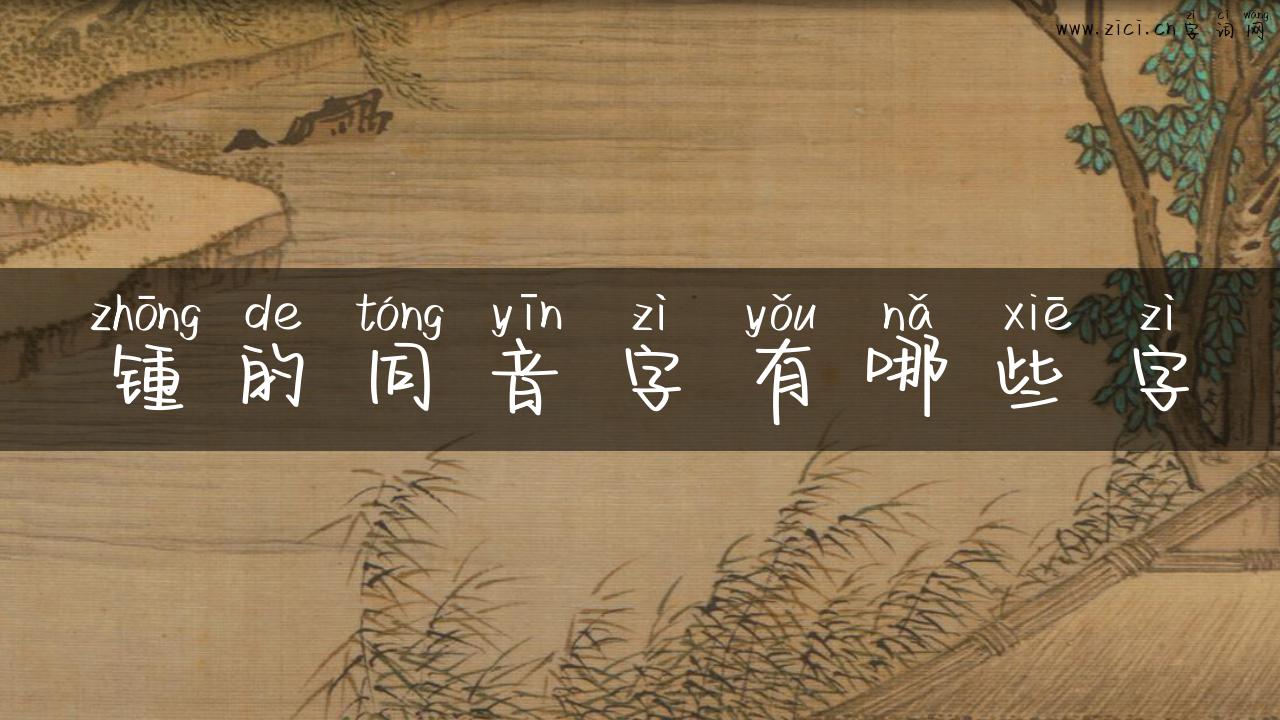 zì cí wǎng
www.zici.cn字词网
zhōng de tóng yīn zì yǒu nǎ xiē zì
锺的同音字有哪些字